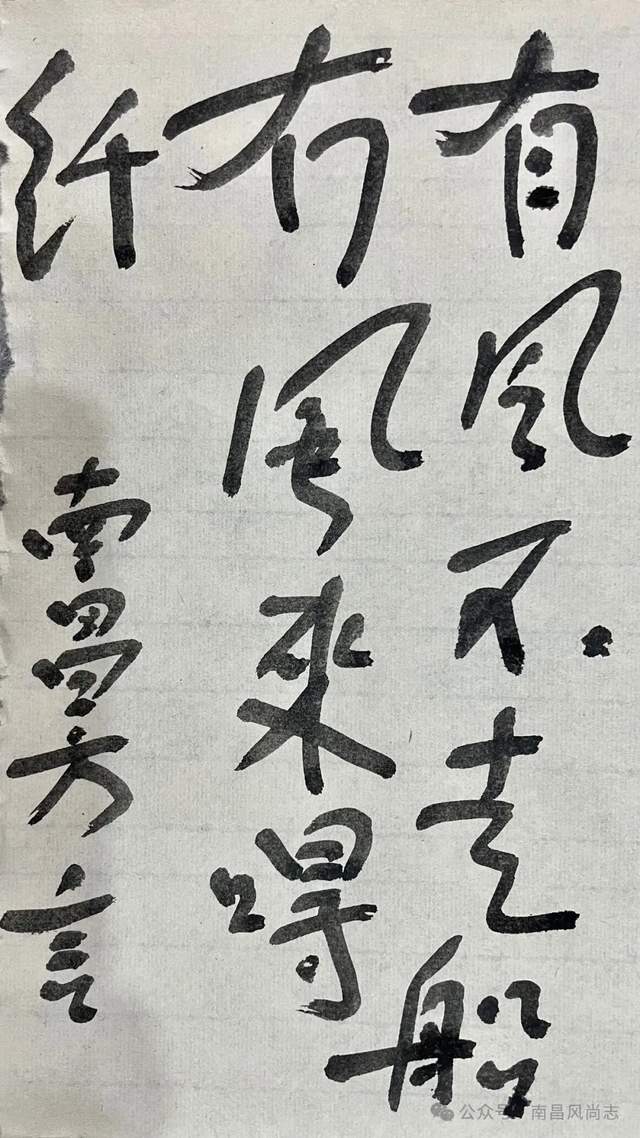 有风不走船
冇風來
纤
南昌方言
公众号 南昌风尚志